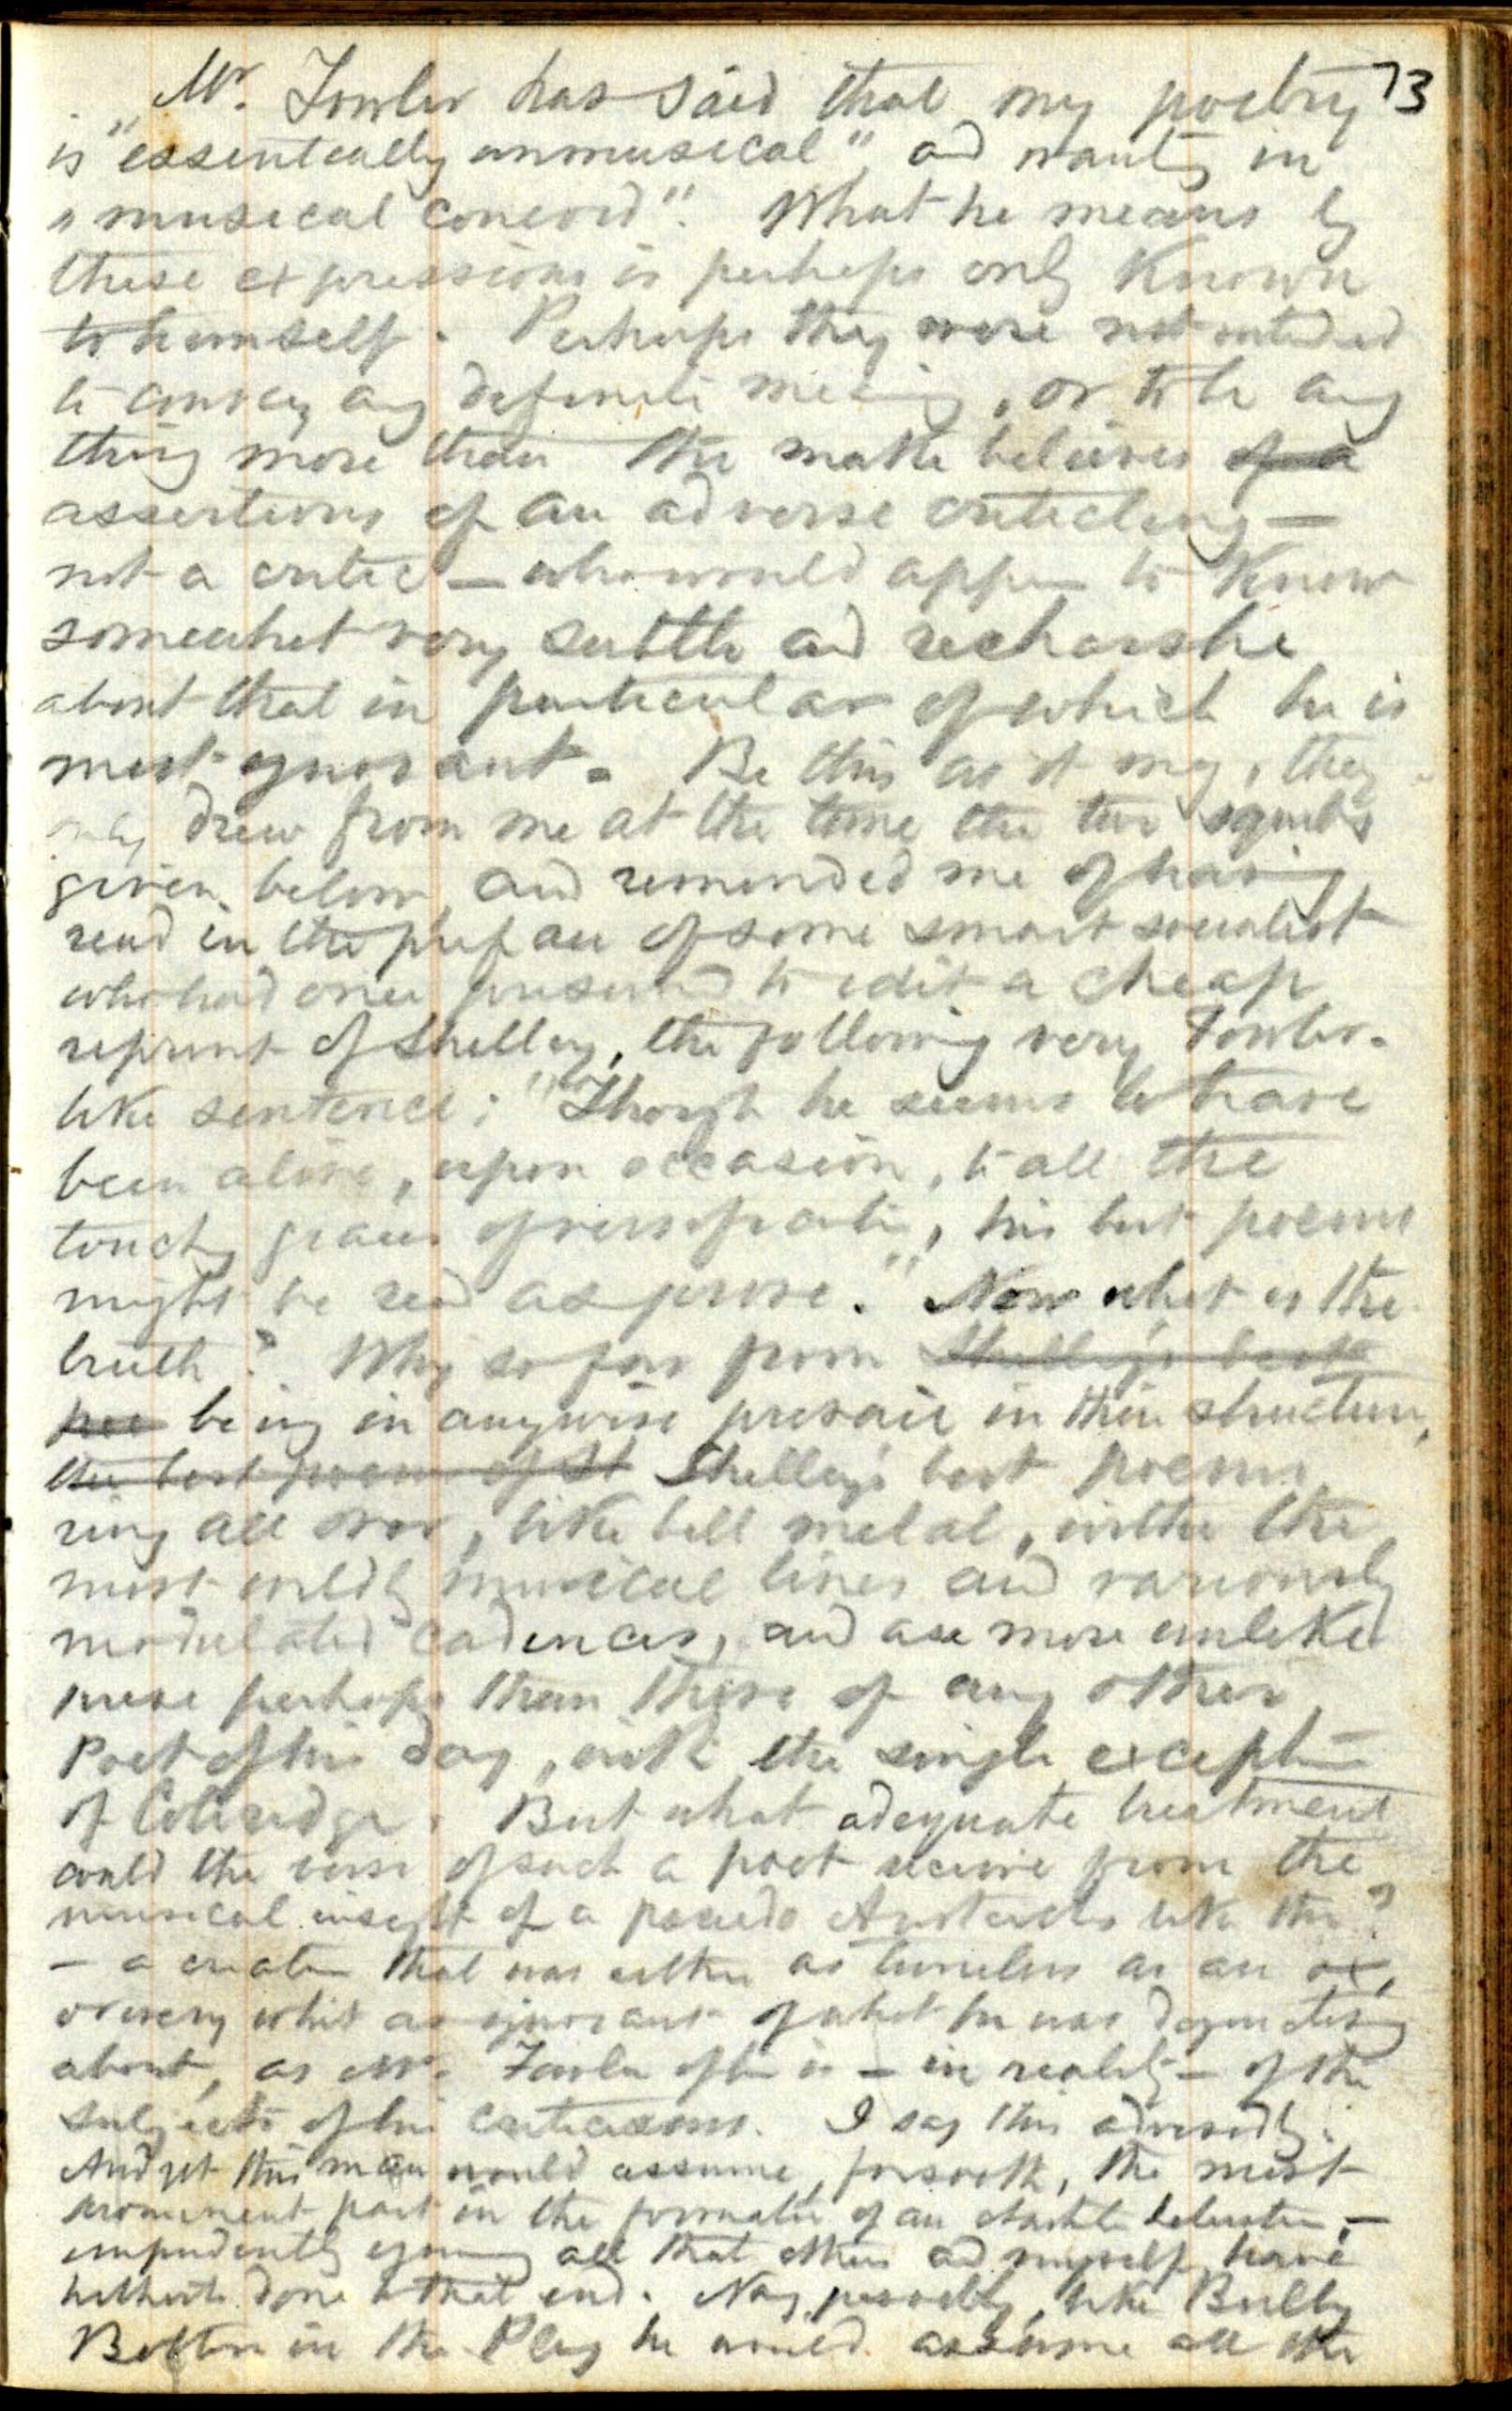 73
Mr. Fowler has said that my poetry
is "essentially unmusical" and wanting in
"musical concord". What he means by
these expressions is perhaps only known
to himself. Perhaps they were not intended
to convey any definite meaning, or to be any
thing more than the make believes of a
assertions of an adverse criticling —
not a critic — who would appear to know
somewhat very subtle and recharshe
about that in particular of which he is
most ignorant. Be this as it may, they
only drew from me at the time the two squibs
given below, and reminded me of having
read in the preface of some smart socialist
who had once presumed to edit a cheap
reprint of Shelley, the following very Fowler-
like sentence: "Though he seems to have
been alive, upon occasion, to all the
touching graces of versification, his best poems
might be read as prose." Now what is the
truth? Why so far from Shelley's best
poe being in anywise prosaic in their structure,
the best poems of Sh Shelley's best poems
ring all over, like bell metal, with the
most wildly musical lines and variously
modulated cadences, and are more unlike
prose perhaps than those of any other
Poet of his day, with the single exception
of Coleridge. But what adequate treatment
could the verse of such a poet receive from the
musical insight of a pseudo Aristarchus like this?
— a creature that was either as tuneless as an ox,
or every whit as ignorant of what he was dogmatising
about, as Mr. Fowler often is — in reality — of the
subjects of his criticisms. I say this advisedly.
And yet this man would assume, forsooth, the most
prominent part in the formation of an literature, —
impudently ignoring all that others and myself have
hitherto done to that end. Nay, possibly, like Bully
Bottom in the Play he would assume all the